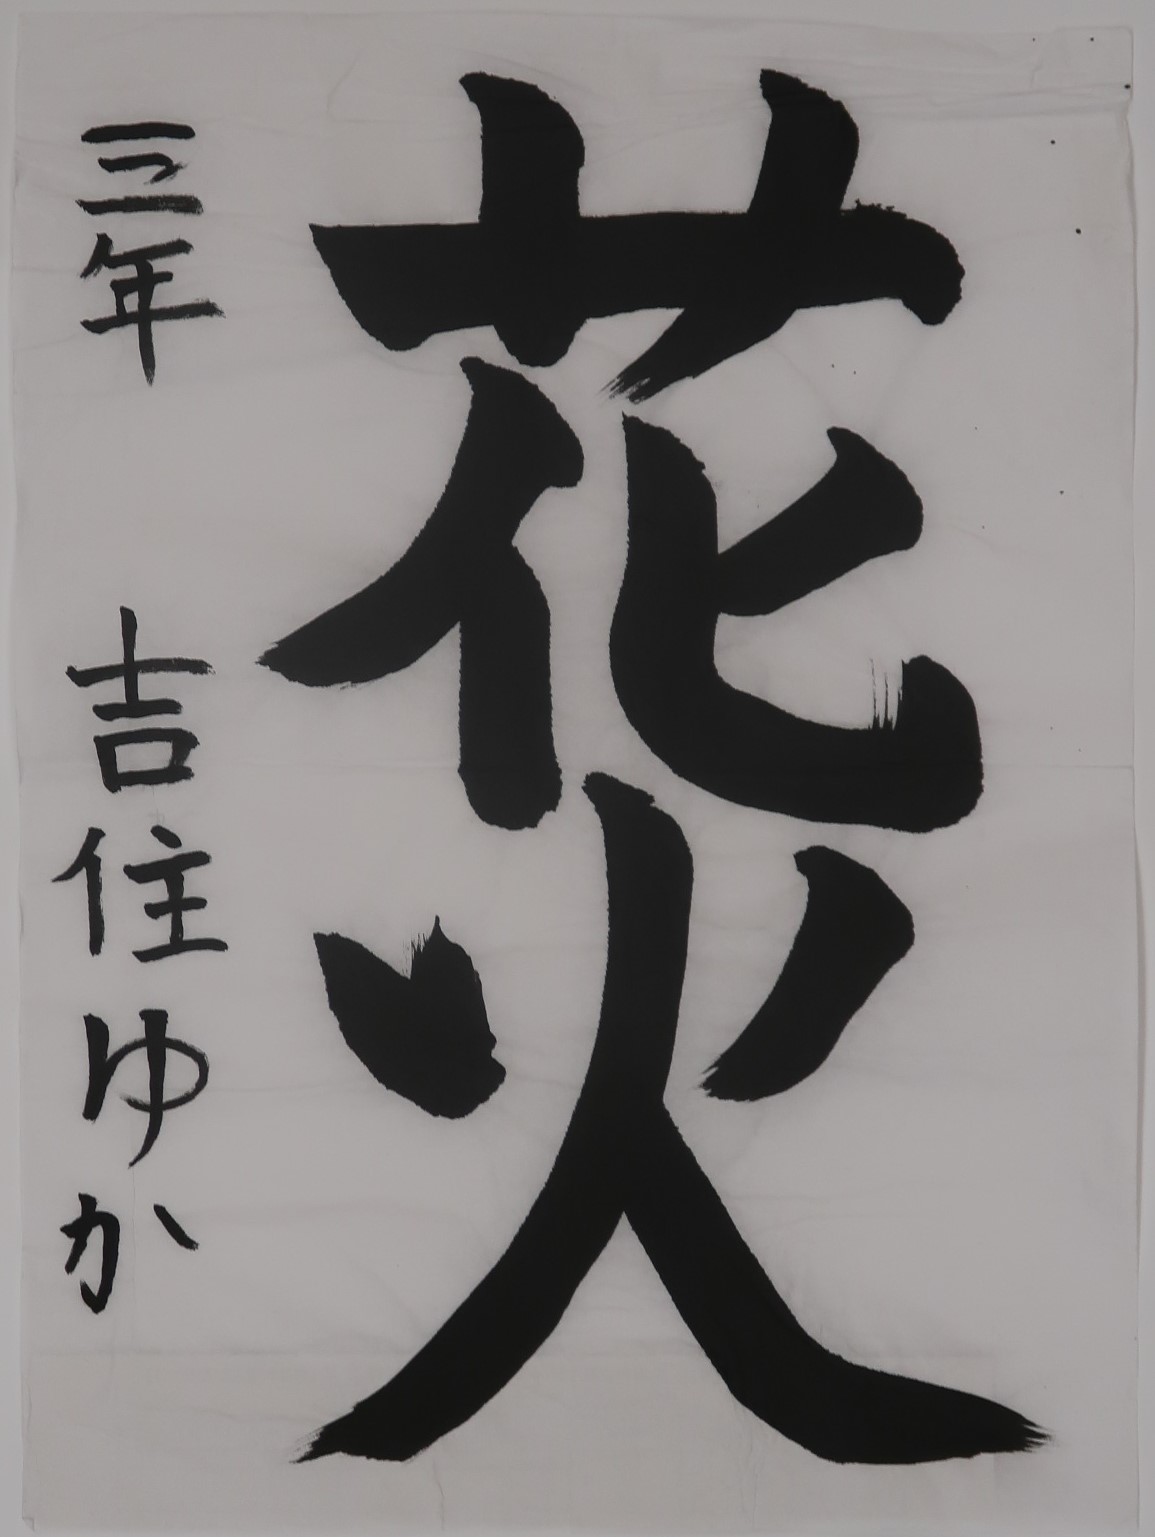 花火
三年 吉住ゆか